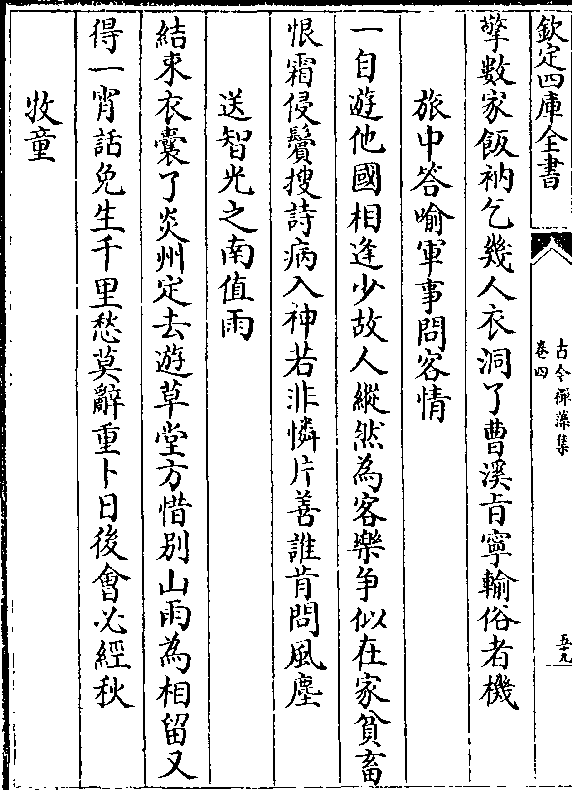 欽定四庫全書
古今禪藻集
卷四
五十九
擎數家飯衲乞幾人衣洞了曹溪旨寧輸俗者機
旅中答喻軍事問客情
一自遊他國相逢少故人縱然為客樂争似在家貧畜
恨霜侵鬢搜詩病入神若非憐片善誰肯問風塵
送智光之南值雨
結束衣囊了炎州定去遊草堂方惜别山雨為相留又
得一宵話免生千里愁莫辭重卜日後會必經秋
牧童